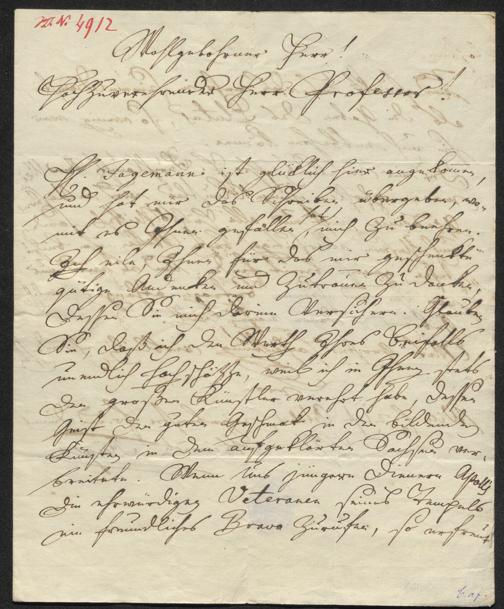 W. N. 4912
Wohlgebohrner Herr!
Hochzuverehrender Herr Professor!
H. Jagemann ist glücklich hier angekommen,
und hat mir das Schreiben übergeben, wo-
mit es Ihnen gefällen hat, mich zu beehren.
Ich eile, Ihnen für das mir geschenkte
gütige Andenken und Zutrauen zu danken,
dessen Sie mich darinn versichern. Glauben
Sie, daß ich den Werth Ihres Beifalls
unendlich hochschätze, weil ich in Ihnen stets
den großen Künstler verehrt habe, dessen
Geist den guten Geschmak in den bildenden
Künsten in dem aufgeklärten Sachsen ver-
breitete. Wenn uns jüngern Dienern Apolls
die ehrwürdigen Veteranen seines Tempels
ein freundliches Bravo zurufen, so erfreut